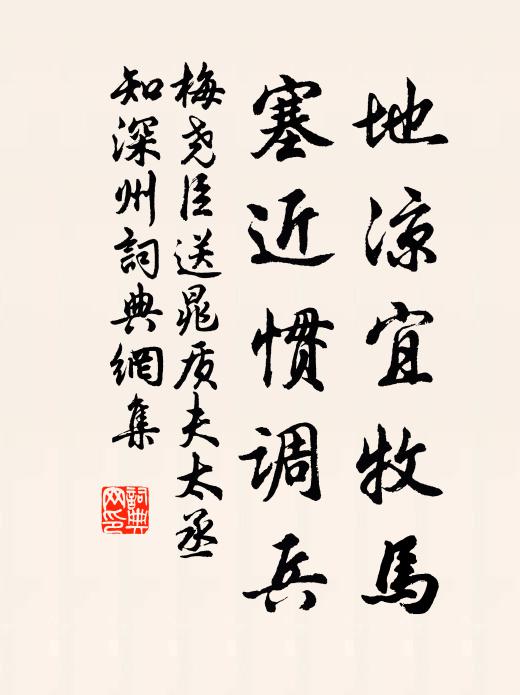 地凉宜牧馬
塞近惯调兵
梅尧臣送晁质夫太丞
知深州詞典網集
詞典網印